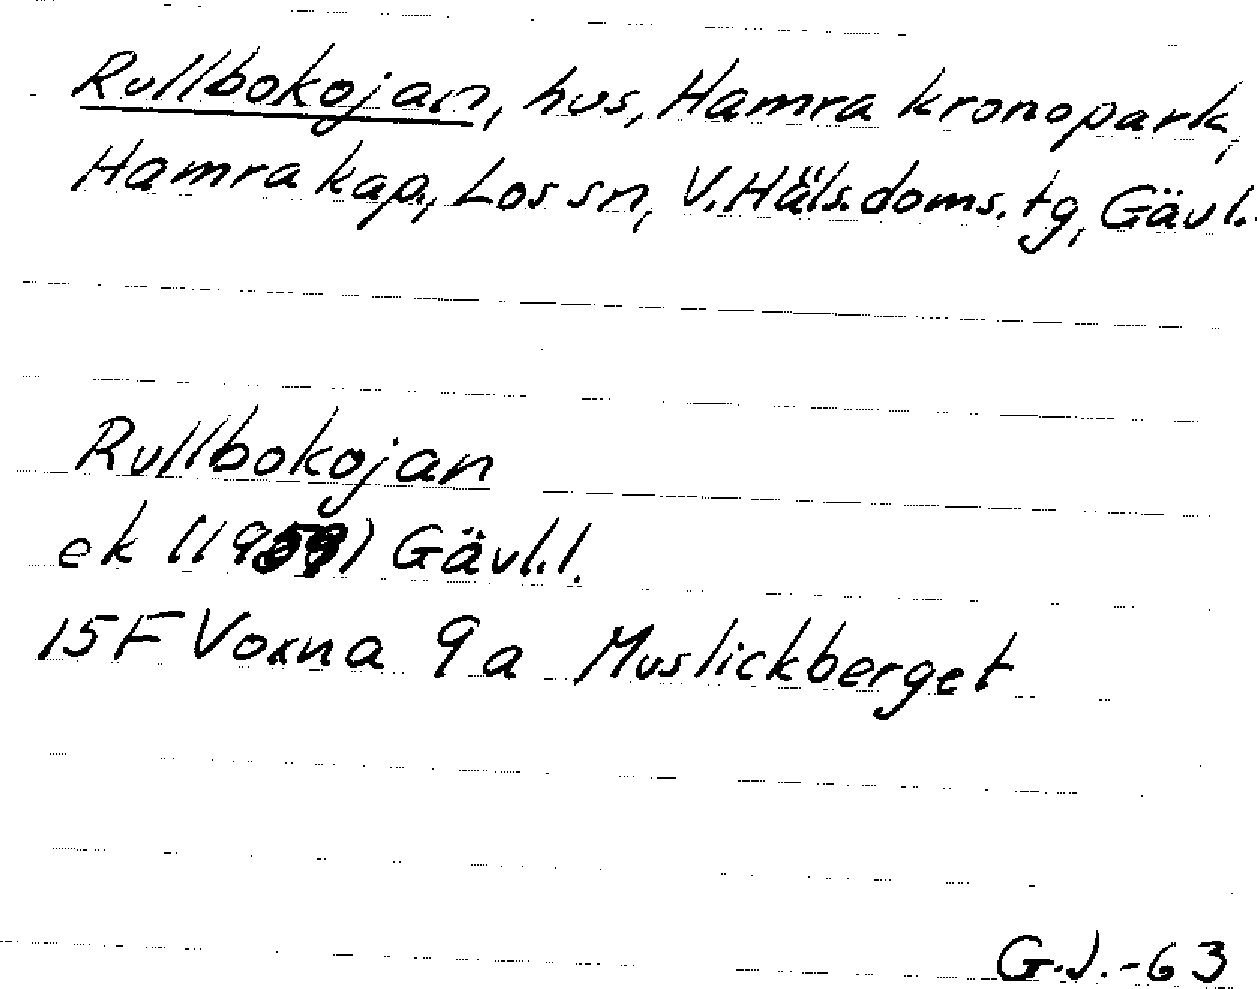 Rullbokojan, hus, Hamra kronopark,
Hamra kap., Los sn, V. Häls. doms. tg, Gävl.
Rullbokojan
ek (1959) Gävl.l.
15F Voxna 9a Muslickberget
G.J.-63